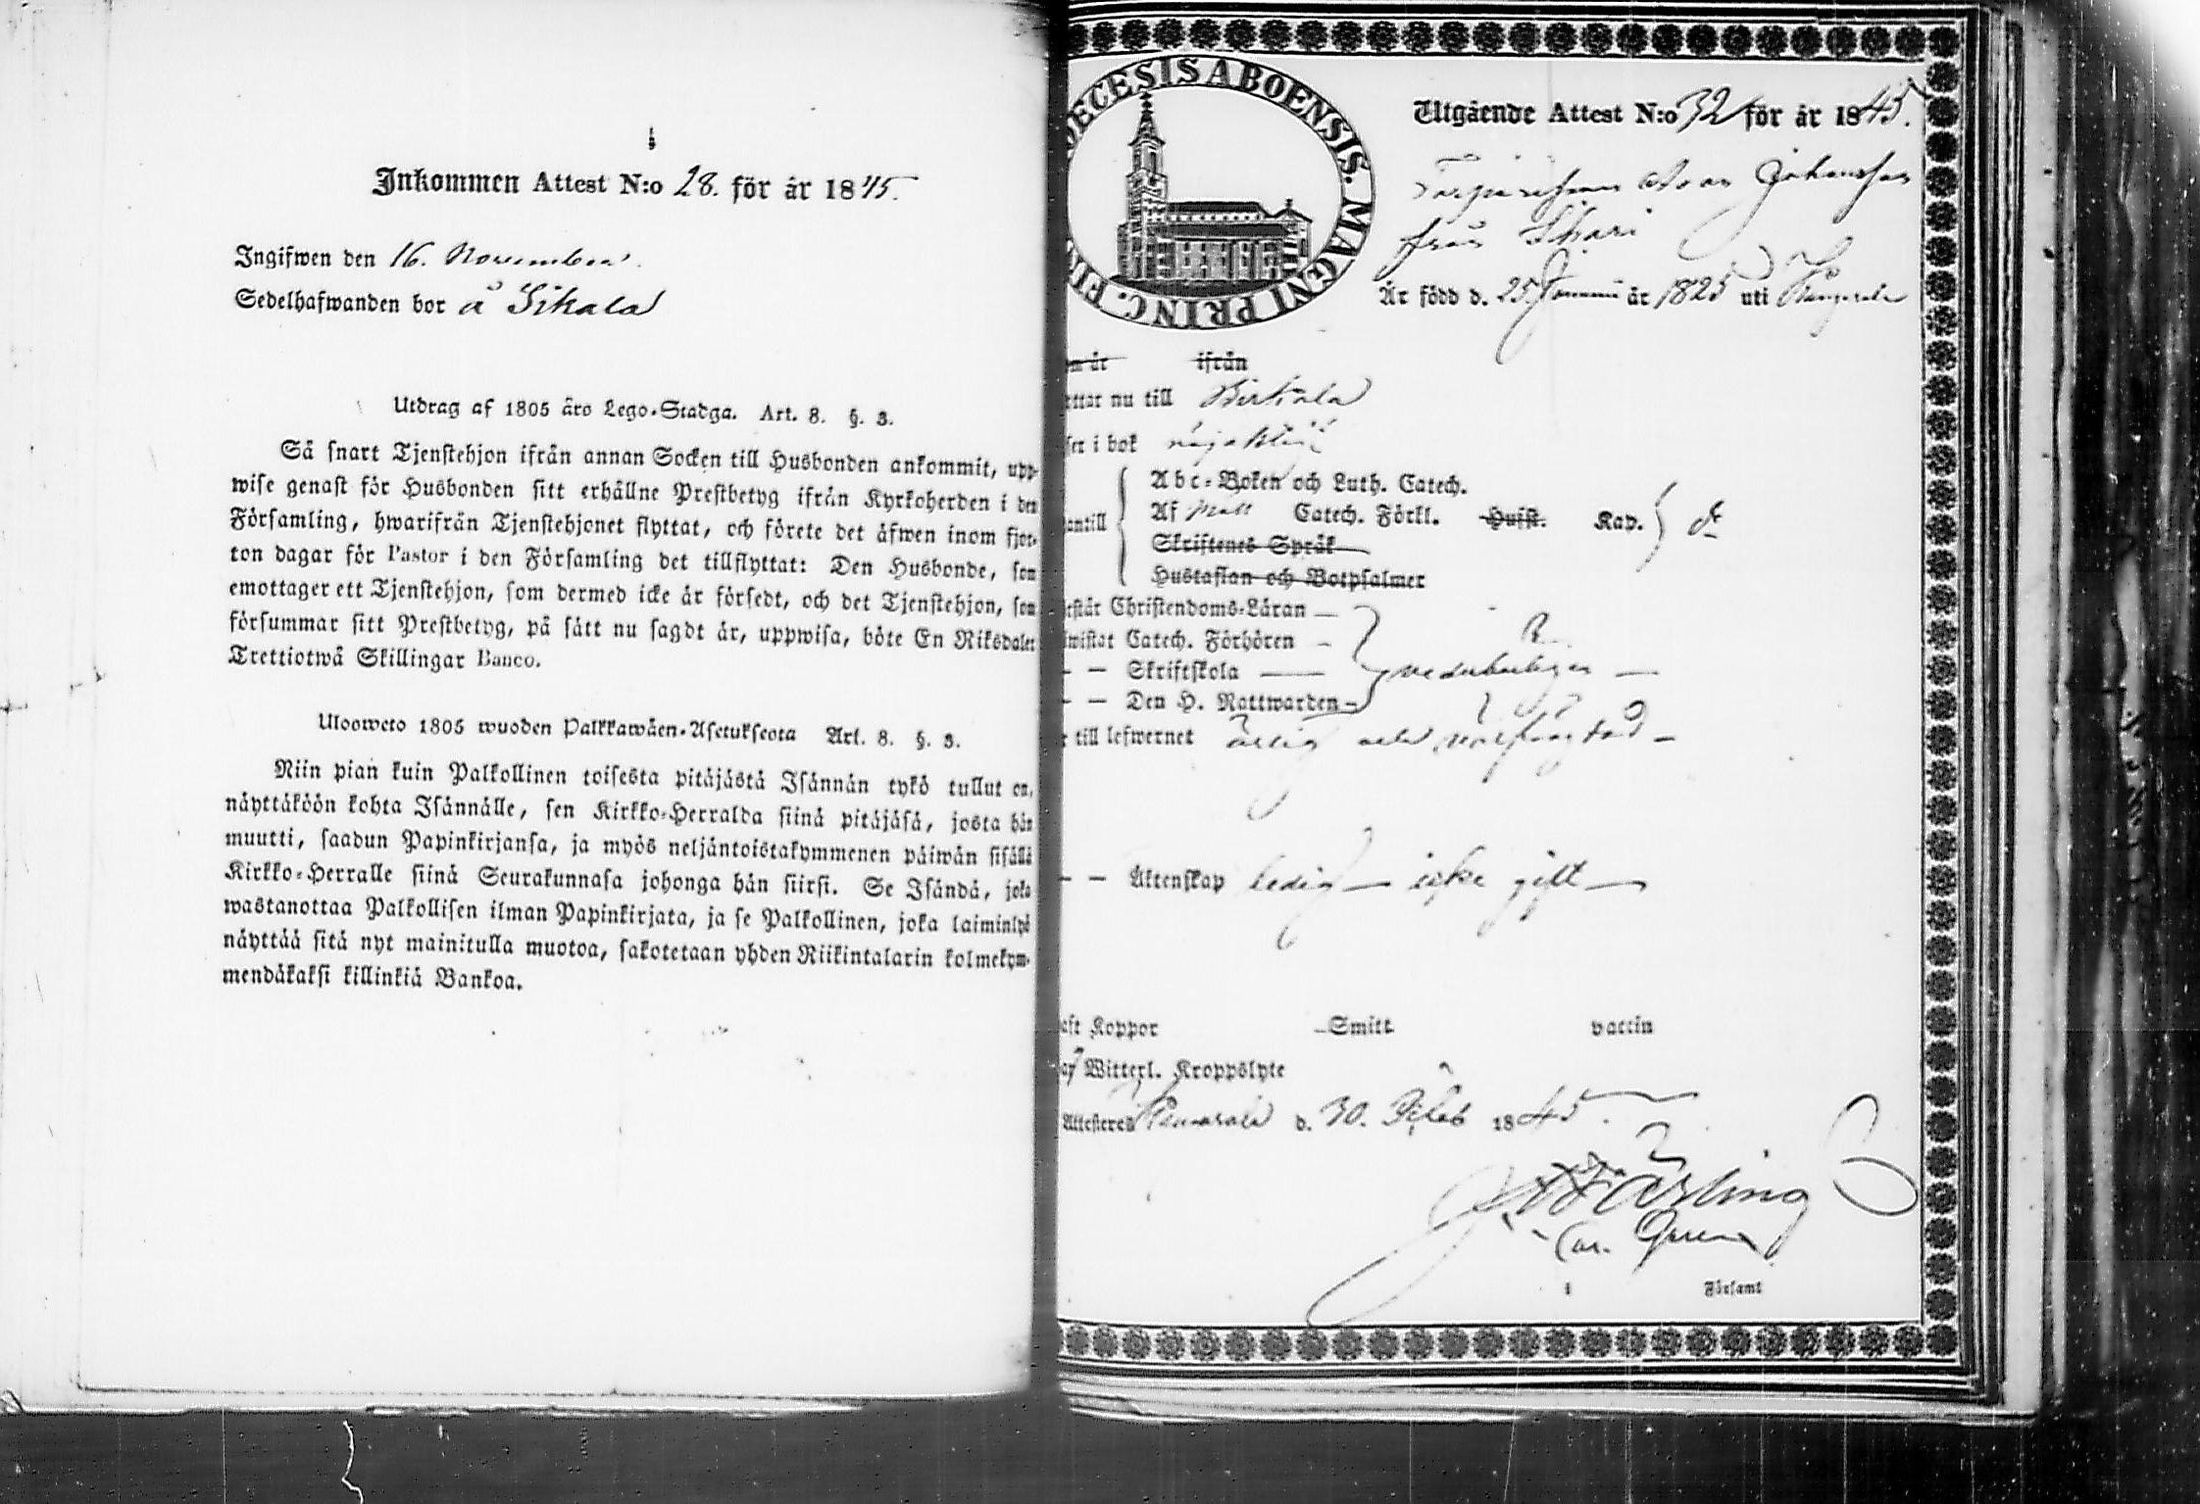 Inkommen Attest N:o 28. för år 1845.
Ingifwen den 16. November.
Sedelhafwanden bor å Sikala
Utdrag af 1805 åro Lego-Stadga. Art. 8. §. 3.
Så snart Tjenstehjon ifrån annan Socken till Husbonden ankommit, upp-
wise genast för Husbonden sitt erhållne Prestbetyg ifrån Kyrkoherden i den
Församling, hwarifrån Tjenstehjonet flyttat, och förete det äfwen inom fjor-
ton dagar för Pastor i den Församling det tillflyttat: Den Husbonde, som
emottager ett Tjenstehjon, som dermed icke är försedt, och det Tjenstehjon, som
försummar sitt Prestbetyg, på sätt nu sagdt är, uppwisa, böte En Riksdaler
Trettiotwå Skillingar Banco.
Ulosweto 1805 wuoden Palkkawäen-Asetuksesta Art. 8. §. 3.
Niin pian kuin Palkollinen toisesta pitäjästä Isännän tykö tullut on,
näyttäköön kohta Isännälle, sen Kirkko-Herralda siinä pitäjäsä, josta hän
muutti, saadun Papinkirjansa, ja myös neljäntoistakymmenen päiwän sisällä
Kirkko-Herralle siinä Seurakunnasa johonga hän siirsi. Se Isändä, joka
wastanottaa Palkollisen ilman Papinkirjata, ja se Palkollinen, joka laiminlyö
näyttää sitä nyt mainitulla muotoa, sakotetaan yhden Riikintalarin kolmekym-
mendäkaksi killinkiä Bankoa.
ECESIS ABOENSIS. MAGNI PRINC. FI
Utgående Attest N:o 32 för år 1845.
Johansson
från
Är född d. 25 år 1825 uti
år ifrån
ttar nu till Birkala
ser i bok
antill
Abc-Boken och Luth. Catech.
Af Catech. Förkl. Hust. Kap.
Skriftenes Språk
Hustaflan och Botpsalmer
rstår Christendoms-Läran
iwistat Catech. Förhören
— — Skriftskola
— — Den H. Nattwarden
till lefwernet ärlig och
— — Äktenskap ledig — icke gift —
aft Koppor Smitt vaccin
af Witterl. Kroppslyte
Attesteres d. 30. 1845.
i Församl